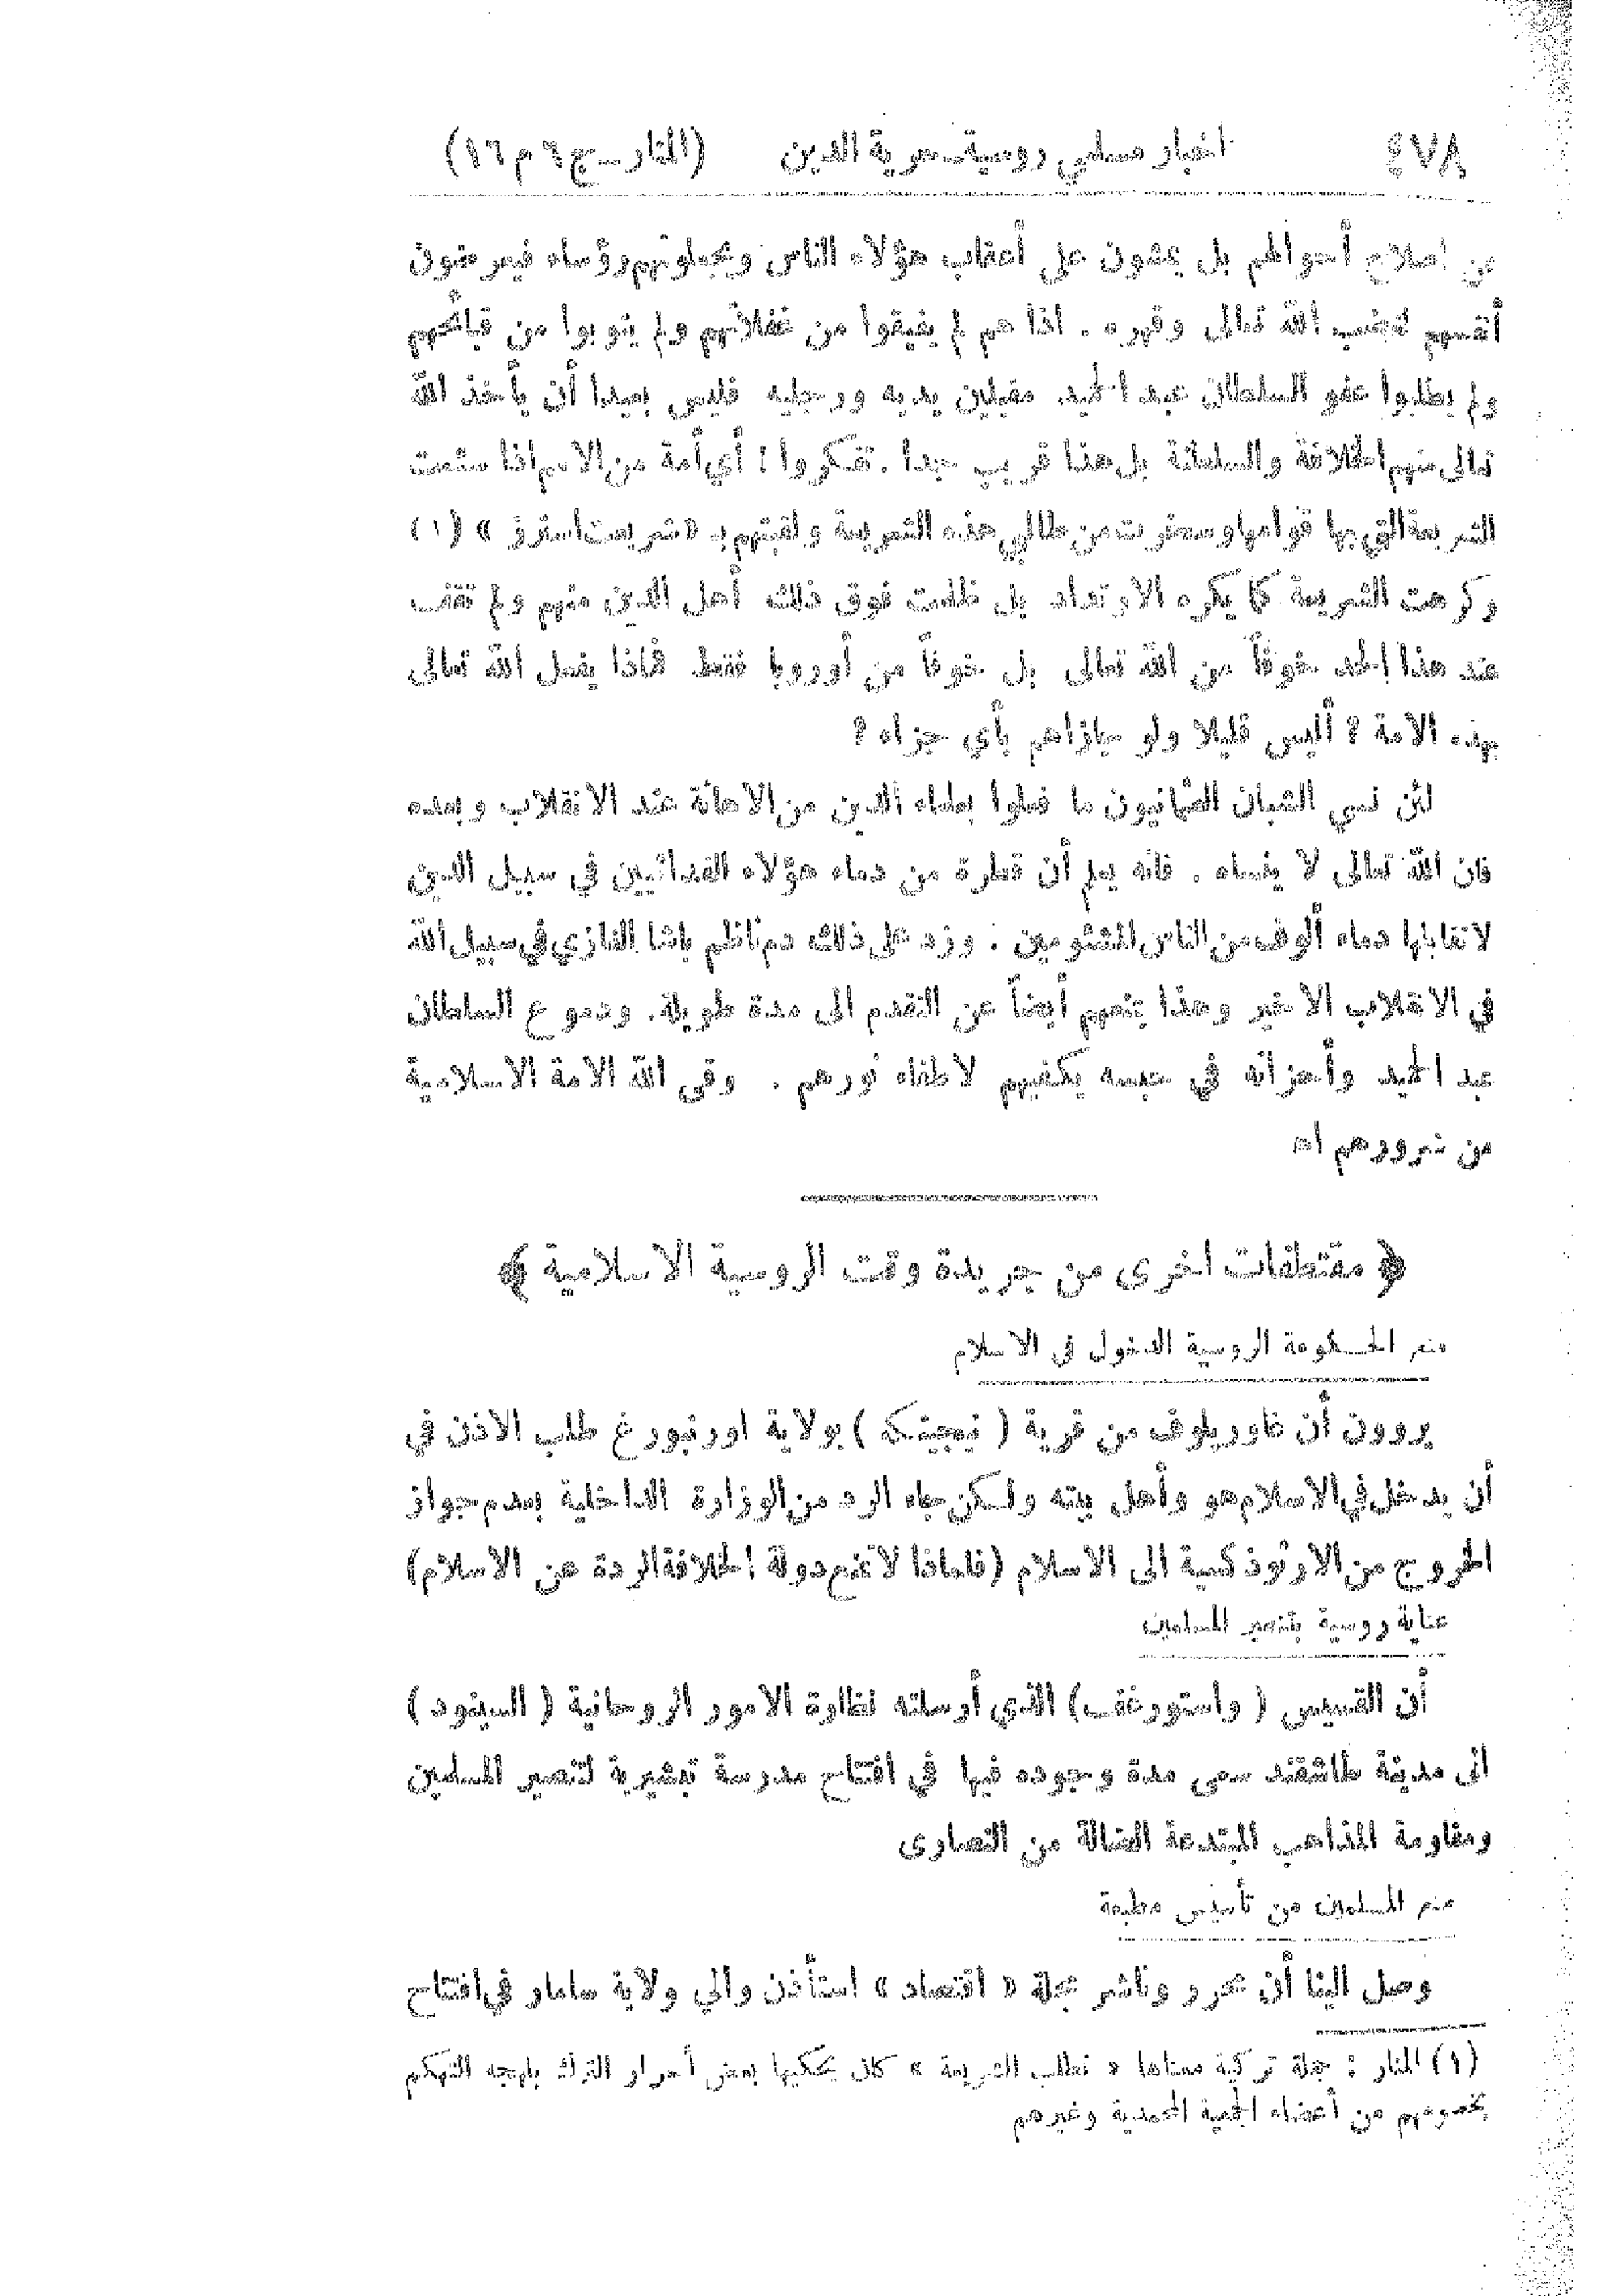 ٤٧٨ اخبار مسلمي روسية ـ حرية الدين (المنار ـ ج ٦ م ١٦)
عن اصلاح أحوالهم بل يمشون على أعقاب هؤلاء الناس ويجعلونهم رؤساء فيعرضون
أنفسهم لغضب الله تعالى وقهره . اذا هم لم يفيقوا من غفلاتهم ولم يتوبوا من قبائحهم
ولم يطلبوا عفو السلطان عبد الحميد مقبلين يديه ورجليه فليس بعيدا أن يأخذ الله
تعالى منهم الخلافة والسلطنة بل هذا قريب جدا . تفكروا ! أي أمة من الامم اذا سئمت
الشريعة التي بها قوامها وسخرت من طالبي هذه الشريعة ولقبتهم بـ «شريعت استرز » (١)
وكرهت الشريعة كما يكره الارتداد بل ظلمت فوق ذلك أهل الدين منهم ولم تقف
عند هذا الحد خوفاً من الله تعالى بل خوفاً من أوروبا فقط فماذا يفعل الله تعالى
بهذه الامة ؟ أليس قليلا ولو جازاهم بأي جزاء ؟
لئن نسي الشبان العثمانيون ما فعلوا بعلماء الدين من الاهانة عند الانقلاب وبعده
فان الله تعالى لا ينساه . فانه يعلم أن قطرة من دماء هؤلاء الفدائيين في سبيل الدين
لا تقابلها دماء ألوف من الناس المشئومين . وزد على ذلك دم ناظم باشا الغازي في سبيل الله
في الانقلاب الاخير وهذا يمنعهم أيضاً عن التقدم الى مدة طويلة. ودموع السلطان
عبد الحميد وأحزانه في حبسه يكفيهم لاطفاء نورهم . وقى الله الامة الاسلامية
من شرورهم اه
﴿ مقتطفات اخرى من جريدة وقت الروسية الاسلامية ﴾
منع الحكومة الروسية الدخول في الاسلام
يروون أن غاوريلوف من قرية ( ) بولاية اورنبورغ طلب الاذن في
أن يدخل في الاسلام هو وأهل بيته ولكن جاء الرد من الوزارة الداخلية بعدم جواز
الخروج من الارثوذكسية الى الاسلام (فلماذا لا تمنع دولة الخلافة الردة عن الاسلام)
عناية روسية بتنصير المسلمين
أن القسيس ( واستورغف) الذي أرسلته نظارة الامور الروحانية ( السينود )
الى مدينة طاشقند سعى مدة وجوده فيها في افتتاح مدرسة تبشيرية لتنصير المسلمين
ومقاومة المذاهب المبتدعة الضالة من النصارى
منع المسلمين من تأسيس مطبعة
وصل الينا أن محرر وناشر مجلة « اقتصاد » استأذن والي ولاية سامار في افتتاح
(١) المنار : جملة تركية معناها « نطلب الشريعة » كان يحكيها بعض أحرار الترك بلهجة التهكم
بخصومهم من أعضاء الجمعية المحمدية وغيرهم